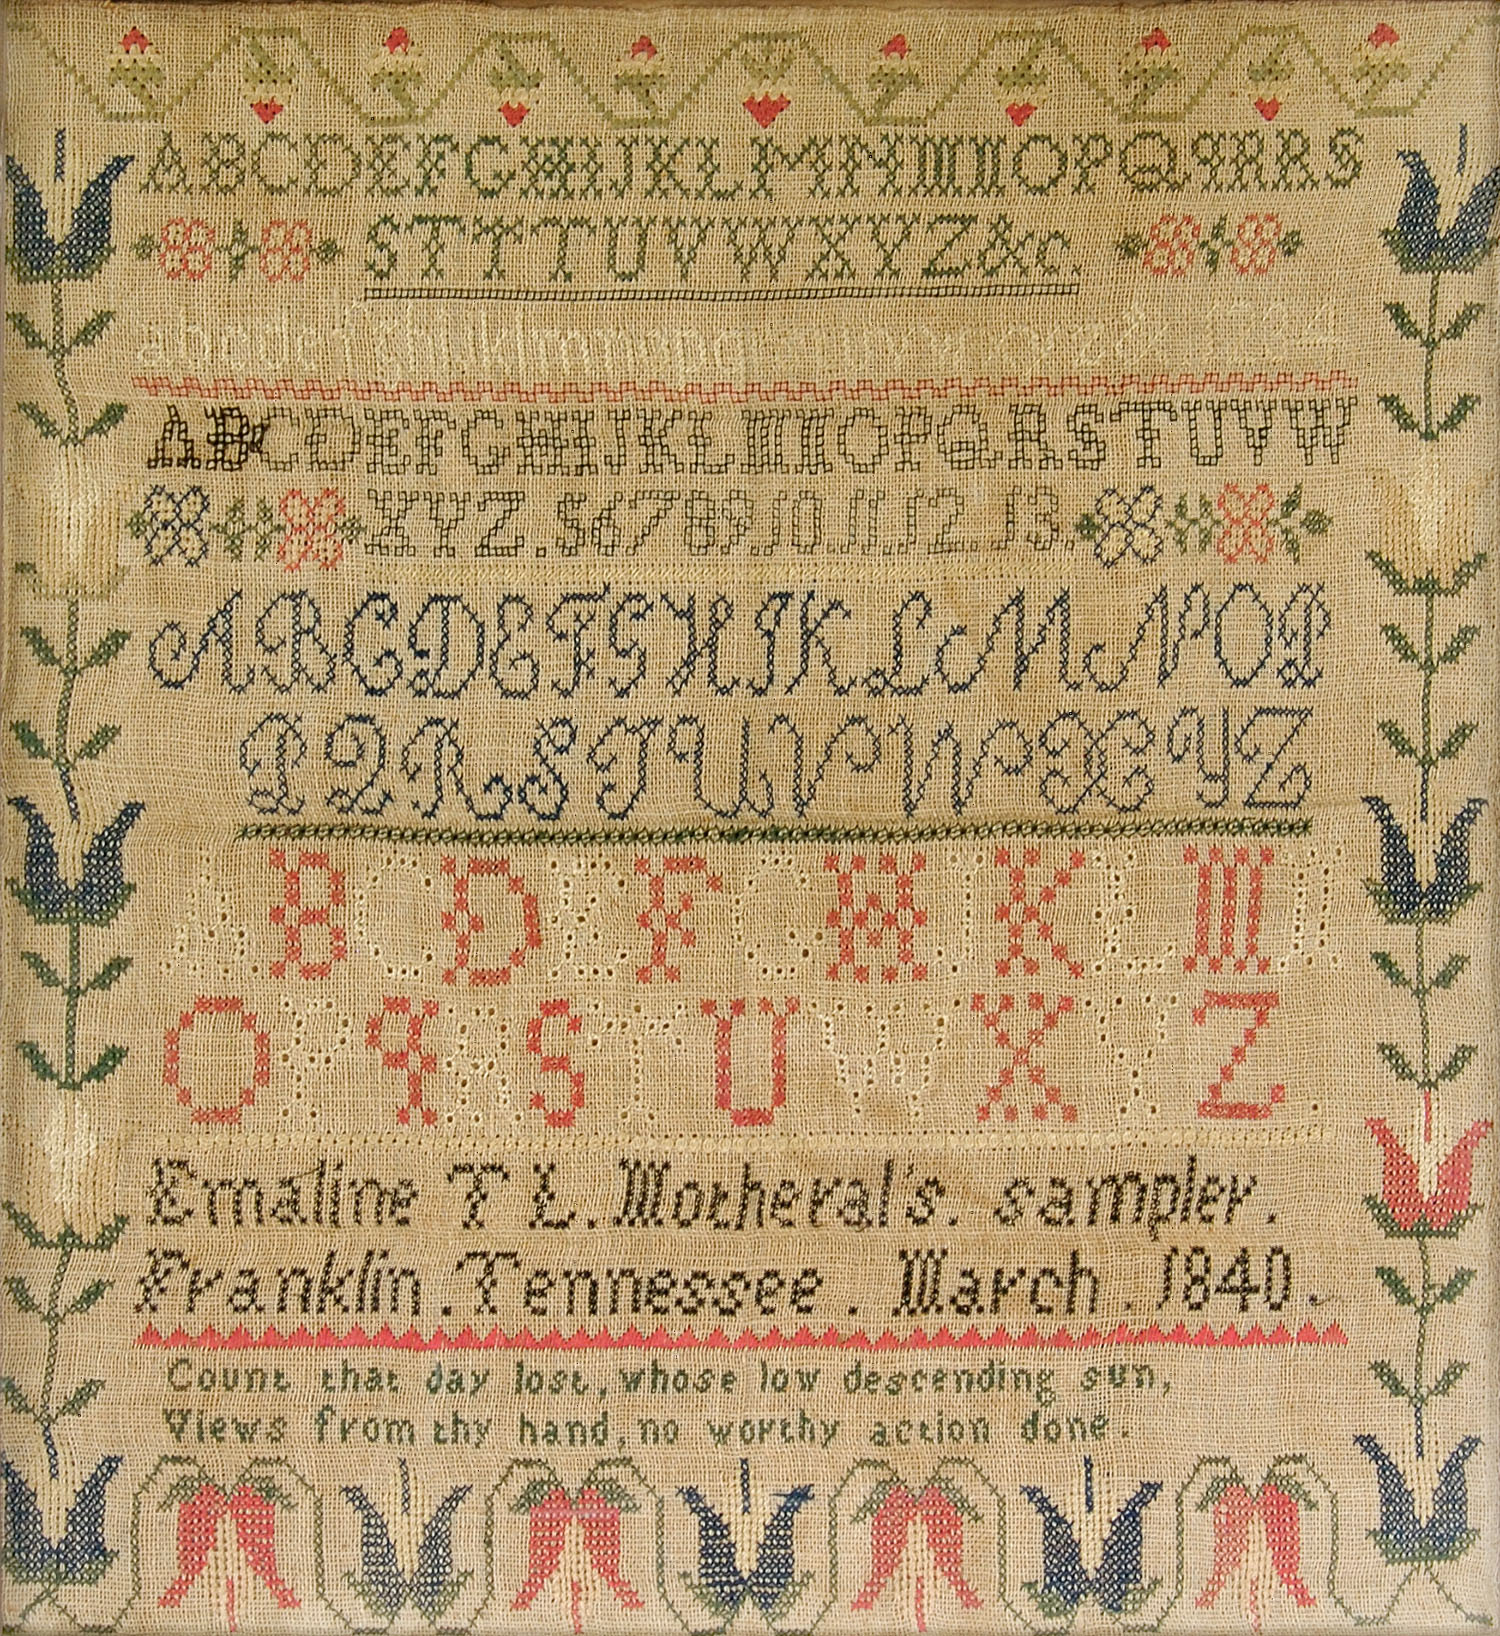 ABCDEFGHIJKLMNMNOPQqRRS
STTTUVWXYZ&c.
abcdefghijklmnopq 1234
ABCDEFGHIJKLMNOPQRSTUVW
XYZ.56789.10.11.12.13.
ABCDEFGHIJKLMNOP
PQRSTUVWXYZ
ABCDEFGHJKLMN
OPqRSTUWXYZ.
Emaline T L. Motheral's. sampler.
Franklin. Tennessee. March. 1840.
Count that day lost, whose low descending sun,
Views from thy hand, no worthy action done.